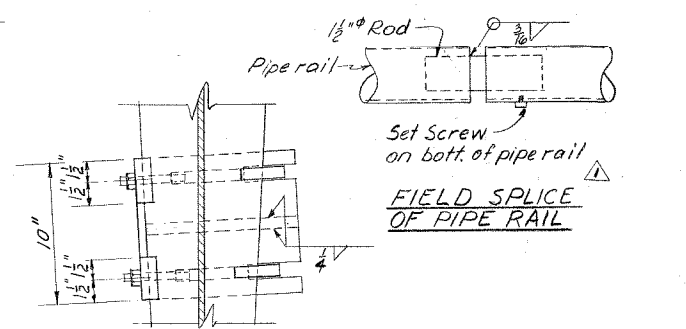 1 1/2"ϕ Rod
3/16
Pipe rail
Set Screw
on bott. of pipe rail
1
FIELD SPLICE
OF PIPE RAIL
10"
1 1/2"
1 1/2"
1 1/2"
1 1/2"
1/4